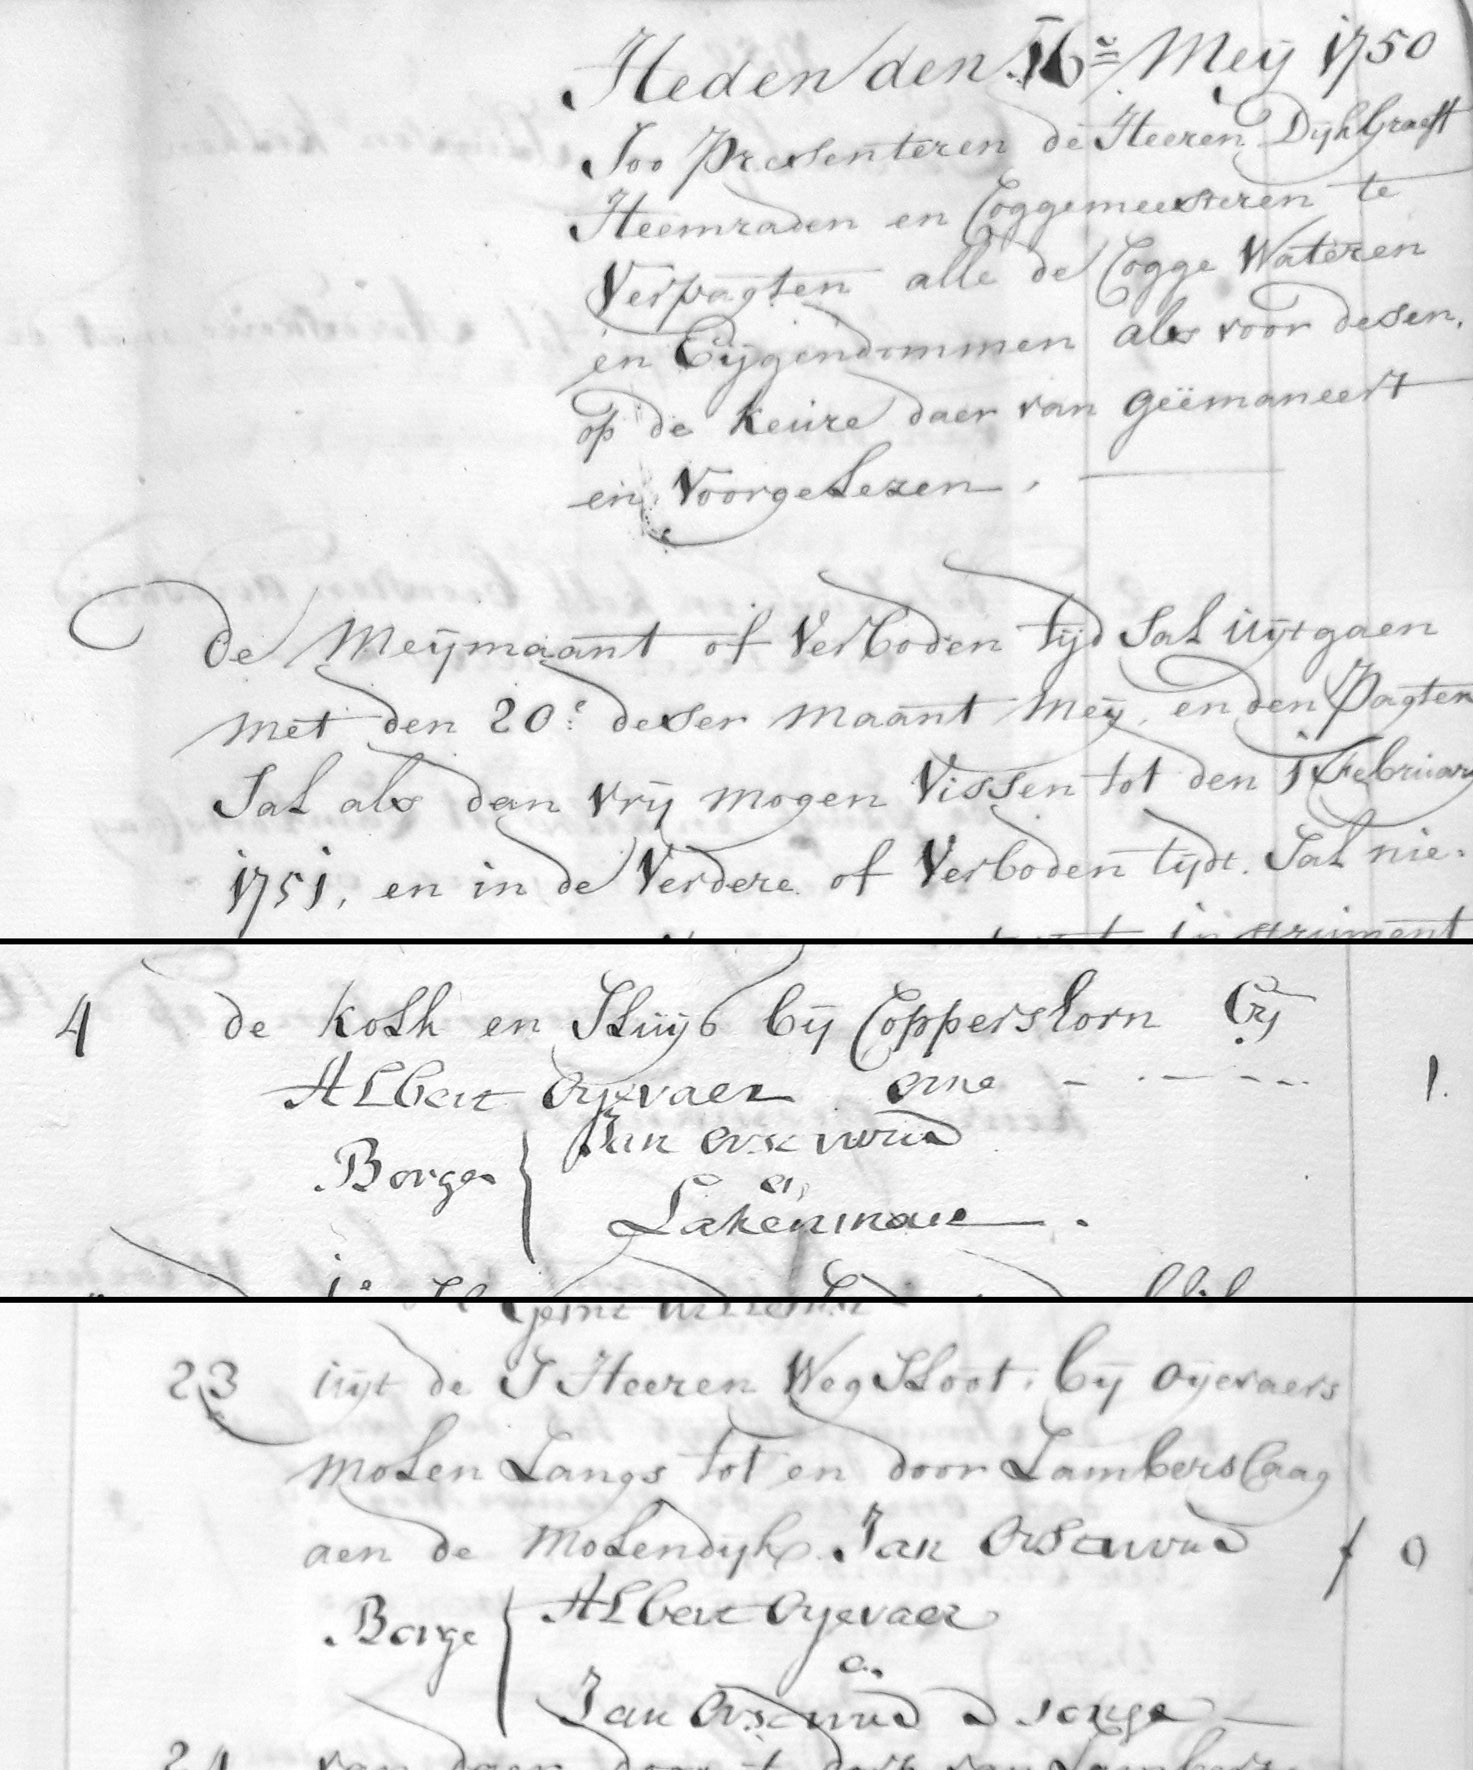 Heden den 16e Meÿ 1750
Soo Presenteren de Heeren Dijkgraeff
Heemraden en Coggemeesteren te
Verpagten alle de Cogge Wateren
en Eijgendommen als voor desen,
op de Keure daer van geëmaneert
en Voorgelezen.
de Meijmaant of Verboden tijd Sal uijtgaen
met den 20e deser maant Meÿ, en den Pagter
Sal als dan vrij mogen Vissen tot den 1 Februarÿ
1751, en in de Verdere of Verboden tijdt. Sal nie=
instrument
4 de kolk en Sluijs bij Coppershorn bij
Albert Oijevaer 1.
Borge Jan
en
Lakenman
23 uijt de S Heeren Weg Sloot, bij Oijevaers
molen Langs tot en door Lamberscaag
aen de Molendijk Jan f 0
Borge Albert Oijevaer
en
Jan de jonge
24 van daer door t dorp van Lambers